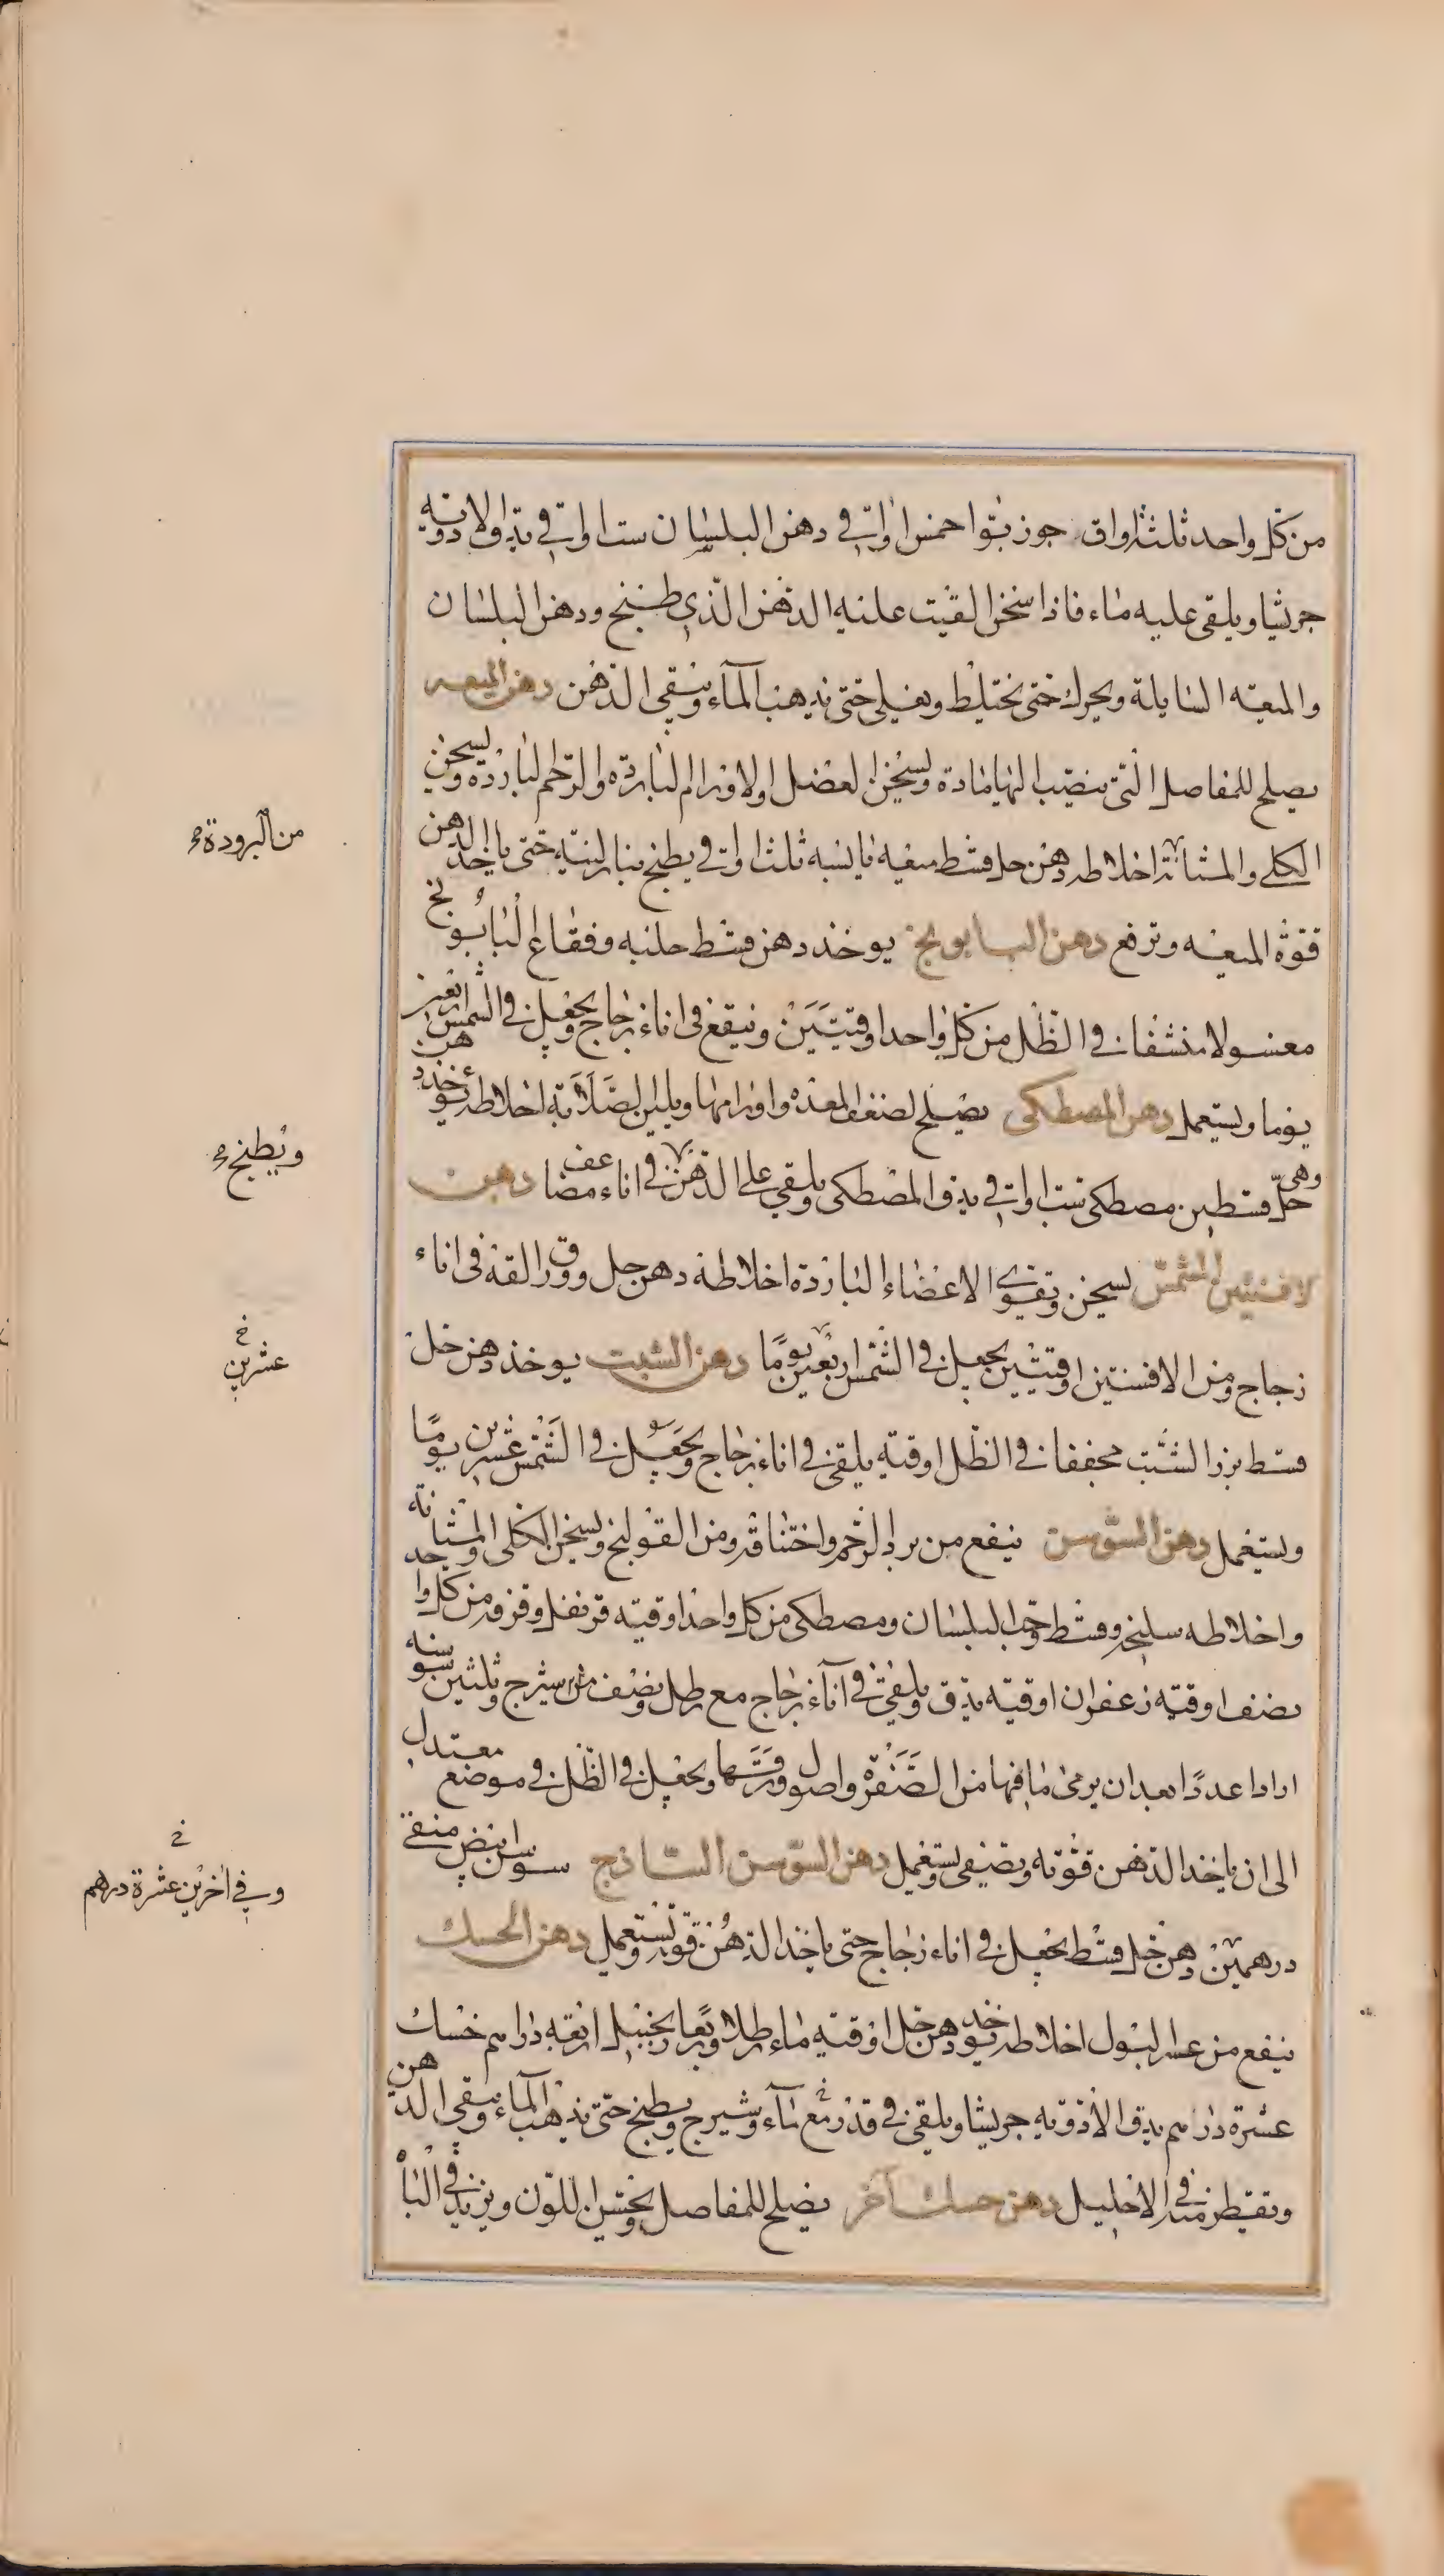 من كل واحد ثلثة اواق جوز بوا خمس اواقي دهن البلسان ست اواقي يدق الادوية
جريشا ويلقى عليه ماء فاذا سخن القيت عليه الدهن الذي طبخ ودهن البلسان
والميعه السايلة ويحرك حتى يختلط ويغلي حتى يذهب المآء ويبقى الدهن دهن الميعه
يصلح للمفاصل التي ينصب اليها مادة ويسخن العضل والاورام الباردة والرحم الباردة ويسخن
الكلى والمثانة اخلاطه دهن حل قسط ميعه يابسه ثلث اواقي يطبخ بنار لينة حتى ياخذ الدهن
قوة الميعه وترفع دهن البابونج يوخذ دهن قسط حلبه وفقاع البابونج
مغسولا منشفا في الظل من كل واحد اوقيتين وينقع في اناء زجاج ويجعل في الشمس اربعين
يوما ويستعمل دهن المصطكى يصلح لضعف المعده واورامها ويلين الصلابة اخلاطه يؤخذ دهن
وهي حل قسطين مصطكى ست اواقي يدق المصطكى ويلقى على الدهن في اناء مضاعف دهن
لافنتين المشمس يسخن ويقوي الاعضاء الباردة اخلاطه دهن حل وورق القه في اناء
زجاج ومن الافسنتين اوقيتين يجعل في الشمس اربعين يوما دهن الشبت يوخذ دهن خل
قسط بزر الشبت مجففا في الظل اوقية يلقى في اناء زجاج ويجعل في الشمس عشرين يوما
ويستعمل دهن السوسن ينفع من برد الرحم واختناقه ومن القولنج ويسخن الكلى والمثانة
واخلاطه سليخه وقسط وحب البلسان ومصطكى من كل واحد اوقيه قرنفل وقرفه من كل واحد
نصف اوقيه زعفران اوقيه يدق ويلقى في اناء زجاج مع رطل ونصف من شيرج وثلثين سوسنه
ازادا عددا بعد ان يرمى ما فيها من الصفرة واصول ورقها ويجعل في الظل في موضع معتدل
الى ان ياخذ الدهن قوته ويصفى ويستعمل دهن السوسن الساذج سوسن ابيض منقى
درهمين دهن خل قسط يجعل في اناء زجاج حتى ياخذ الدهن قوته ويستعمل دهن الحسك
ينفع من عسر البول اخلاطه يوخذ دهن خل اوقيه ماء رطلا وربعا زنجبيل اربعه دراهم حسك
عشرة دراهم يدق الادويه جريشا ويلقى في قدر مع مآء وشيرج ويطبخ حتى يذهب المآء ويبقى الدهن
ويقطر منه في الاحليل دهن حسك آخر يصلح للمفاصل ويحسن اللون ويزيد في الباه
من البرودة
ويطبخ
خ
عشرين
خ
وفي اخرين عشرة درهم